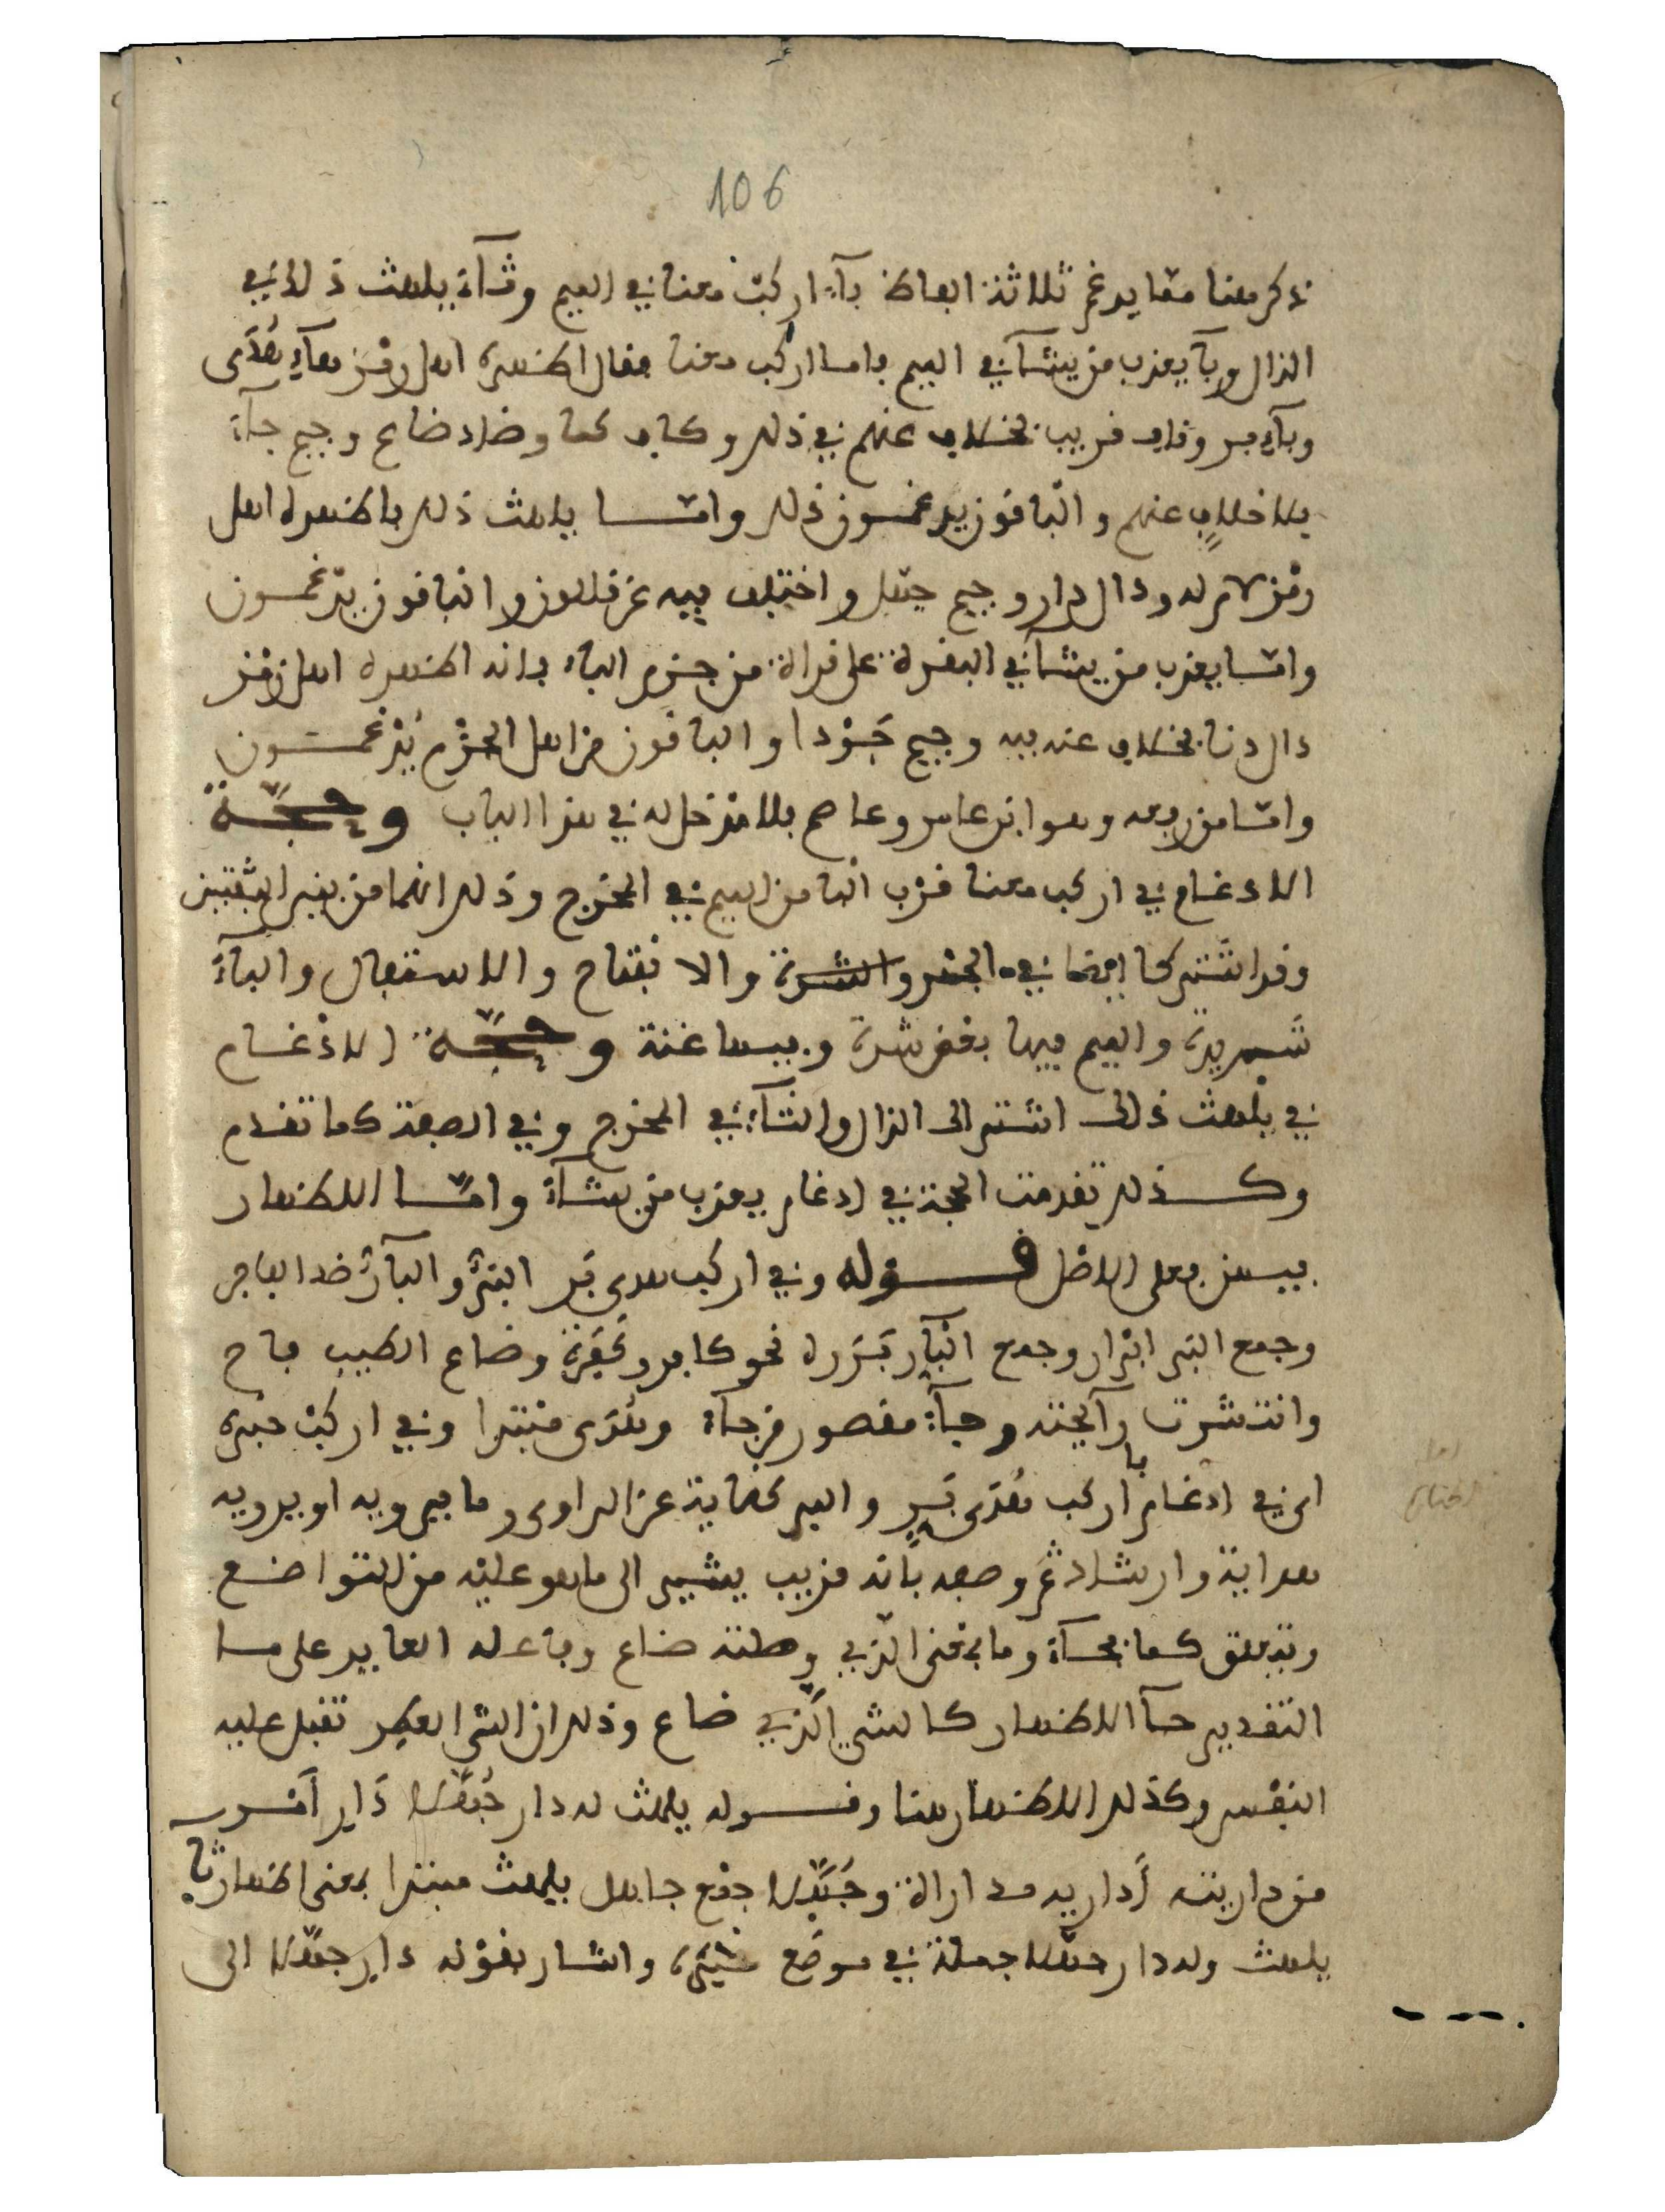 106
ذكر هنا مما يدغم ثلاثة الفاظ باء اركب معنا في الميم وثاء يلهث ذلك في
الذال وبا يعذب من يشاء في الميم فاما اركب معنا فقال اظهره اهل رمز هاء هدى
وباء بر وقاف قريب بخلاف عنهم في ذلك وكاف كما وضاد ضاع وجيم جاء
بلا خلاف عنهم والباقون يدغمون ذلك واما يلهث ذلك فاظهره اهل
رمز لام له ودال دار وجيم جهلا واختلف فيه عن قالون والباقون يدغمون
واما يعذب من يشاء في البقرة على قراءة من جزم الباء فانه اظهره اهل رمز
دال دنا بخلاف عنه فيه وجيم جَوْدا والباقون من اهل الجزم يُدْغمون
واما من رفعه وهو ابن عامر وعاصم فلا مدخل له في هذا الباب وحجة
الادغام في اركب معنا قرب البا من الميم في المخرج وذلك انهما من بين الشفتين
وقد اشتركا ايضا في الجهر والشدة والانفتاح والاستفال والباء
شديدة والميم فيها بعض شدة وفيها غنة وحجة الادْغام
في يلْهث ذلك اشتراك الذال والثاء في المخرج وفي الصفة كما تقدم
وكذلك تقدمت الحجة في ادغام يعذب من يشاء واما الاظهار
فيهن فعلى الاصْل قوله وفي اركب هدى بَر البَرُّ والبآرُّ ضد الفاجر
وجمع البَر ابْرار وجمع البآر بَرَرة نحو كافر وكَفَرة وضاع الطيب فاح
وانتشرت رآئحته وجآء مقصور من جآء وهُدَى مبتدا وفي اركبْ خبره
اى في ادغام با اركب هُدَى بَرٍ والبر كناية عن الراوي وما يرويه او يرويه
هداية وارشاد ثم وصفه بانه قريب يشير الى ما هو عليه من التواضع
وتتعلق كما بجآء وما بمعنى الذي وصلته ضاع وفاعله العايد على ما
التقدير جآ الاظهار كالشي الَّذي ضاع وذلك ان الشى العطِر تقبل عليه
النفْس وكذلك الاظهار هنا وقوله يلهث له دار جُهَّلا دَارِ امْر
من داريته اَداريه مداراة وجُهَّلا جمْع جاهل يلهث مبتدا بمعنى اظهار ثا
يلهث وله دار جهَّلا جملة في موضع خبره واشار بقوْله دارِ جهَّلا الى